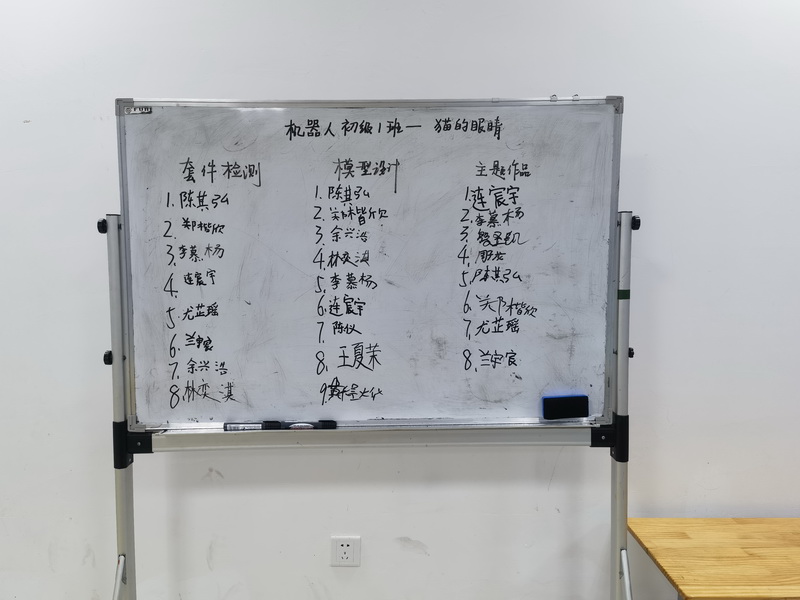 机器人初级1班一 猫的眼睛
套件检测
1.陈其弘
2.郑楷欣
3.李慕杨
4.连宸宇
5.尤芷瑶
6.兰宇宸
7.余兴浩
8.林奕淇
模型设计
1.陈其弘
2.郑楷欣
3.余兴浩
4.林奕淇
5.李慕杨
6.连宸宇
7.陈仪
8.王夏茉
9.
主题作品
1.连宸宇
2.李慕杨
3.
4.
5.陈其弘
6.郑楷欣
7.尤芷瑶
8.兰宇宸